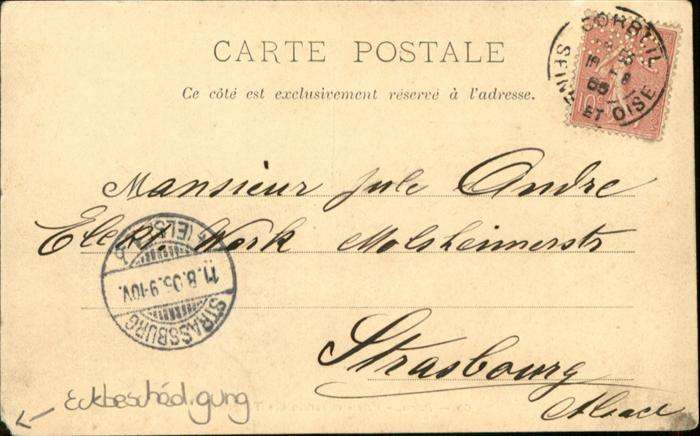 CARTE POSTALE
Ce côté est exclusivement réservé à l'adresse.
CORBEIL
SEINE ET OISE
Mansieur Jule Andre
Elekt. Work Molsheimerstr
Strasbourg
Alsace
STRASSBURG
11.8.05.9-10V.
(ELS)
Eckbeschädigung